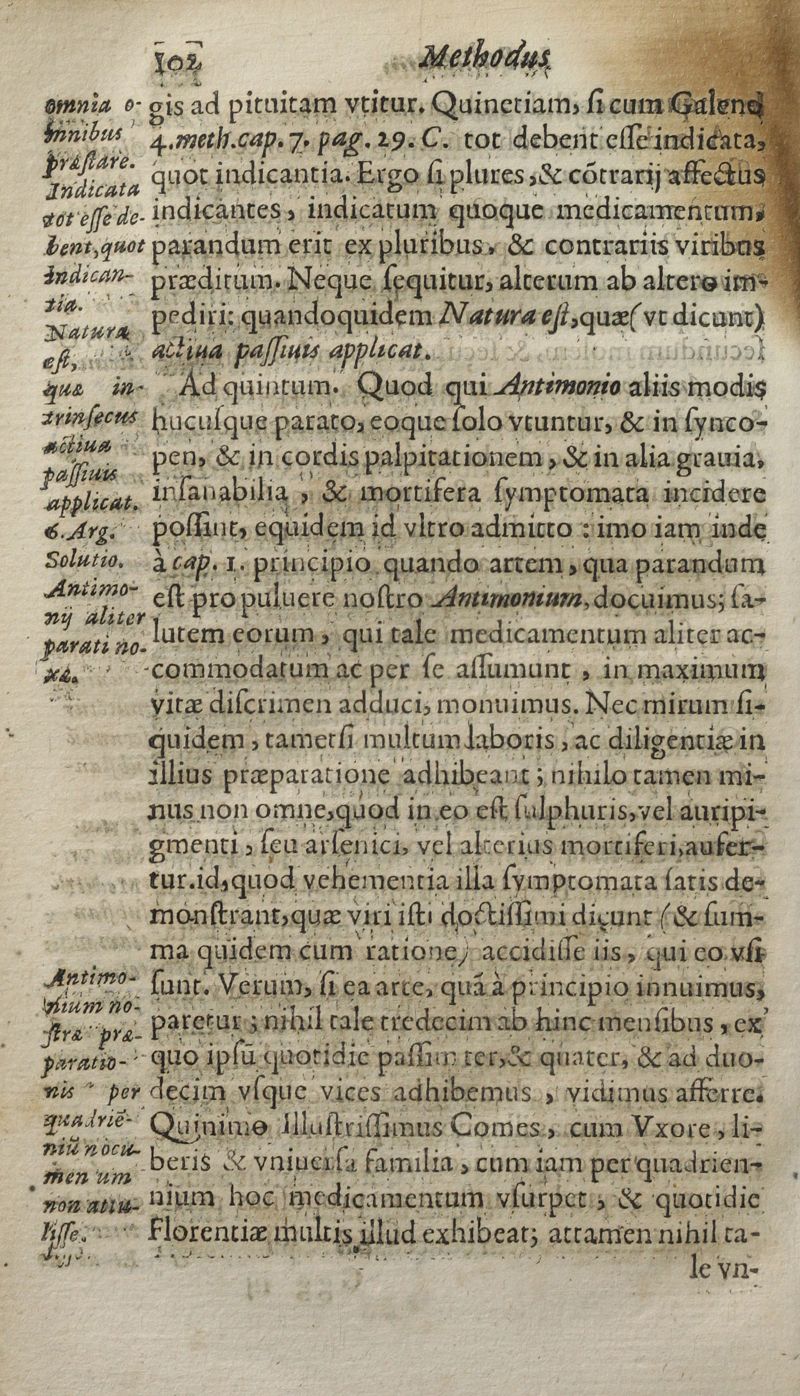 102 Methodus
gis ad pituitam vtitur. Quinetiam, ſi cum Galeno
4.meth.cap. 7. pag. 29. C. tot debent eſſe indicata,
quot indicantia. Ergo ſi plures, & cōtrarij affectus
indicantes, indicatum quoque medicamentum,
parandum erit ex pluribus, & contrariis viribus
præditum. Neque ſequitur, alterum ab altero im-
pediri: quandoquidem Natura eſt, quæ (vt dicunt)
actiua paſſiuis applicat.
Ad quintum. Quod qui Antimonio aliis modis
hucuſque parato, eoque ſolo vtuntur, & in ſynco-
pen, & in cordis palpitationem, & in alia grauia,
inſanabilia, & mortifera ſymptomata incidere
poſſint, equidem id vltro admitto: imo iam inde
à cap. 1. principio quando artem, qua parandum
eſt pro puluere noſtro Antimonium, docuimus; ſa-
lutem eorum, qui tale medicamentum aliter ac-
commodatum ac per ſe aſſumunt, in maximum
vitæ diſcrimen adduci, monuimus. Nec mirum ſi-
quidem, tametſi multum laboris, ac diligentiæ in
illius præparatione adhibeant; nihilo tamen mi-
nus non omne, quod in eo eſt ſulphuris, vel auripi-
gmenti, ſeu arſenici, vel alterius mortiferi, aufer-
tur. id, quod vehementia illa ſymptomata ſatis de-
monſtrant, quæ viri iſti doctiſſimi dicunt (& ſum-
ma quidem cum ratione) accidiſſe iis, qui eo vſi
ſunt. Verum, ſi ea arte, quâ à principio innuimus,
paretur; nihil tale tredecim ab hinc menſibus, ex
quo ipſū quotidie paſſim ter, & quater, & ad duo-
decim vſque vices adhibemus, vidimus afferre.
Quinimo Illuſtriſſimus Comes, cum Vxore, li-
beris & vniuerſa familia, cum iam per quadrien-
nium hoc medicamentum vſurpet, & quotidie
Florentiæ multis illud exhibeat; attamen nihil ta-
le vn-
omnia o-
mnibus
præſtare.
Indicata
tot eſſe de-
bent, quot
indican-
tia.
Natura
eſt,
quæ in-
trinſecus
actiua
paſſiuis
applicat.
6. Arg.
Solutio.
Antimo-
nij aliter
parati no-
xæ.
Antimo-
nium no-
ſtræ præ-
paratio-
nis per
quadriē-
niū nocu-
men um
non attu-
liſſe.